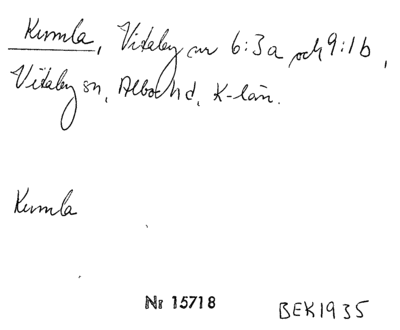 Kumla, Vitaby nr 6:3a och 9:1b,
Vitaby sn, Albo hd, K-län.
Kumla
Nr 15718
BEK1935